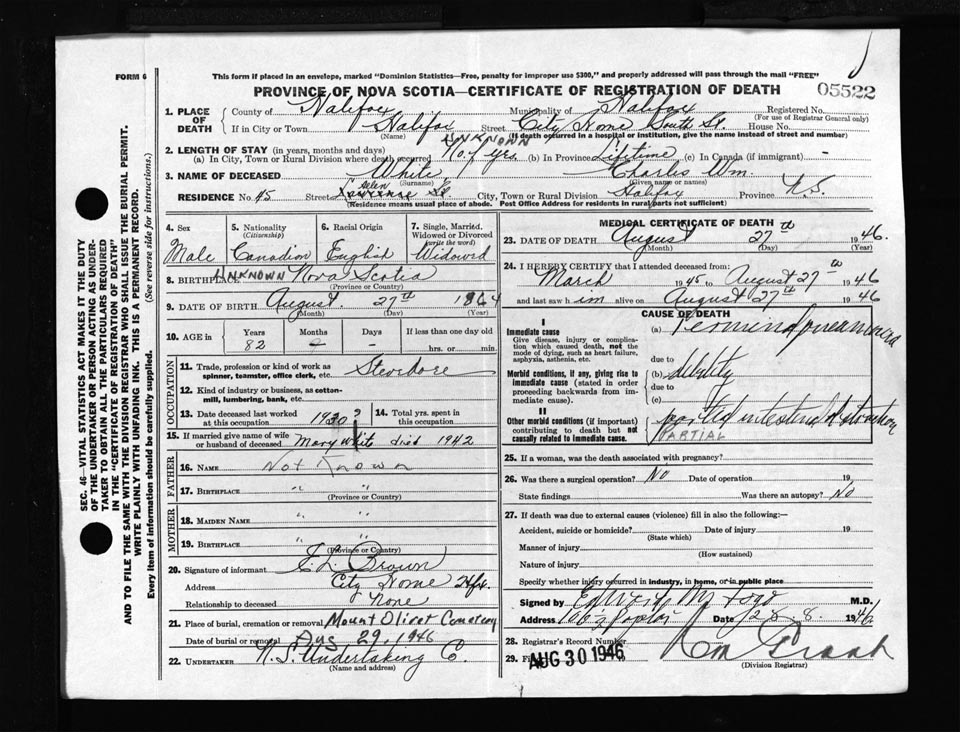 FORM 6
This form if placed in an envelope, marked "Dominion Statistics—Free, penalty for improper use $300," and properly addressed will pass through the mail "FREE"
PROVINCE OF NOVA SCOTIA—CERTIFICATE OF REGISTRATION OF DEATH
05522
1. PLACE OF DEATH County of Halifax Municipality of Halifax Registered No. (For use of Registrar General only)
If in City or Town Halifax (Name) Street City Home South St. House No.
(If death occurred in a hospital or institution, give the name instead of street and number)
UNKNOWN
2. LENGTH OF STAY (in years, months and days)
(a) In City, Town or Rural Division where death occurred No. of yrs (b) In Province Lifetime (c) In Canada (if immigrant) -
3. NAME OF DECEASED White, (Surname) Charles Wm. (Given name or names)
RESIDENCE No. 45 Street St City, Town or Rural Division Halifax Province N.S.
(Residence means usual place of abode. Post Office Address for residents in rural parts not sufficient)
4. Sex Male
5. Nationality (Citizenship) Canadian
6. Racial Origin English
7. Single, Married, Widowed or Divorced (write the word) Widowed
8. BIRTHPLACE UNKNOWN Nova Scotia (Province or Country)
9. DATE OF BIRTH August (Month) 27th (Day) 1864 (Year)
10. AGE in Years 82 Months - Days - If less than one day old hrs. or min.
OCCUPATION
11. Trade, profession or kind of work as spinner, teamster, office clerk, etc. Stevedore
12. Kind of industry or business, as cotton-mill, lumbering, bank, etc.
13. Date deceased last worked at this occupation 1930?
14. Total yrs. spent in this occupation
15. If married give name of wife or husband of deceased Mary White died 1942
FATHER
16. NAME Not Known
17. BIRTHPLACE " " (Province or Country)
MOTHER
18. MAIDEN NAME " "
19. BIRTHPLACE " " (Province or Country)
20. Signature of informant E.L. Brown
Address City Home Hfx.
Relationship to deceased None
21. Place of burial, cremation or removal Mount Olivet Cemetery
Date of burial or removal Aug 29, 1946
22. UNDERTAKER N.S. Undertaking C. (Name and address)
MEDICAL CERTIFICATE OF DEATH
23. DATE OF DEATH August (Month) 27th (Day) 1946. (Year)
24. I HEREBY CERTIFY that I attended deceased from:
March 1945 to August 27th 1946
and last saw him alive on August 27th 1946
CAUSE OF DEATH
I
Immediate cause
Give disease, injury or complication which caused death, not the mode of dying, such as heart failure, asphyxia, asthenia, etc.
(a)
due to
Morbid conditions, if any, giving rise to immediate cause (stated in order proceeding backwards from immediate cause).
(b) debility
due to
(c)
II
Other morbid conditions (if important) contributing to death but not causally related to immediate cause.
partial intestinal obstruction
PARTIAL
25. If a woman, was the death associated with pregnancy?
26. Was there a surgical operation? No Date of operation 19
State findings Was there an autopsy? No
27. If death was due to external causes (violence) fill in also the following:—
Accident, suicide or homicide? Date of injury 19
(State which)
Manner of injury (How sustained)
Nature of injury
Specify whether injury occurred in industry, in home, or in public place
Signed by M.D.
Address Date 28.8. 1946
28. Registrar's Record Number
29. AUG 30 1946
(Division Registrar)
SEC. 46—VITAL STATISTICS ACT MAKES IT THE DUTY
OF THE UNDERTAKER OR PERSON ACTING AS UNDER-
TAKER TO OBTAIN ALL THE PARTICULARS REQUIRED
IN THE "CERTIFICATE OF REGISTRATION OF DEATH"
AND TO FILE THE SAME WITH THE DIVISION REGISTRAR WHO SHALL ISSUE THE BURIAL PERMIT.
WRITE PLAINLY WITH UNFADING INK. THIS IS A PERMANENT RECORD.
Every item of information should be carefully supplied. (See reverse side for instructions.)